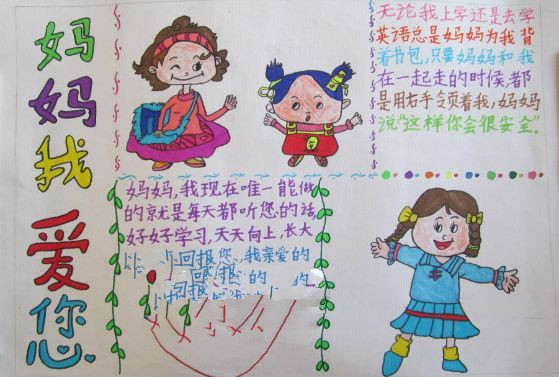 妈妈我爱您
无论我上学还是去学
英语总是妈妈为我背
着书包,只要妈妈和我
在一起走的时候,都
是用右手领着我,妈妈
说“这样你会很安全”.
妈妈,我现在唯一能做
的就是每天都听您的话
好好学习,天天向上,长大
回报您,我亲爱的
回报
的
回报